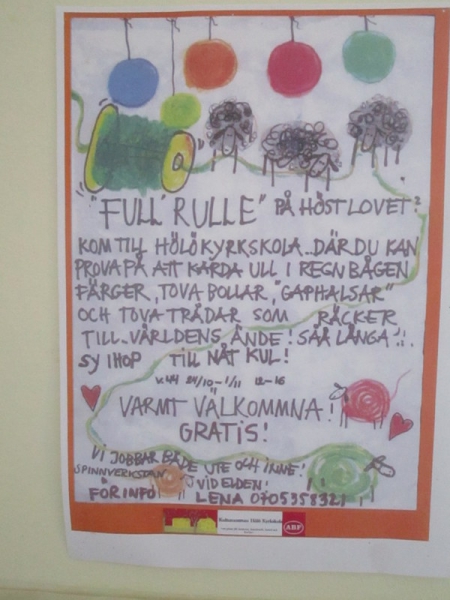 "FULL RULLE" PÅ HÖSTLOVET!
KOM TILL HÖLÖ KYRKSKOLA.. DÄR DU KAN
PROVA PÅ ATT KARDA ULL I REGNBÅGEN
FÄRGER, TOVA BOLLAR, "GAPHALSAR"
OCH TOVA TRÅDAR SOM RÄCKER
TILL VÄRLDENS ÄNDE! SÅÅ LÅNGA!
SY IHOP TILL NÅT KUL!
V.44 29/10-1/11 12-16
VARMT VÄLKOMMNA!
GRATIS!
VI JOBBAR BÅDE UTE OCH INNE!
SPINNVERKSTAN VID ELDEN!
FÖR INFO LENA 0705358321
ABF